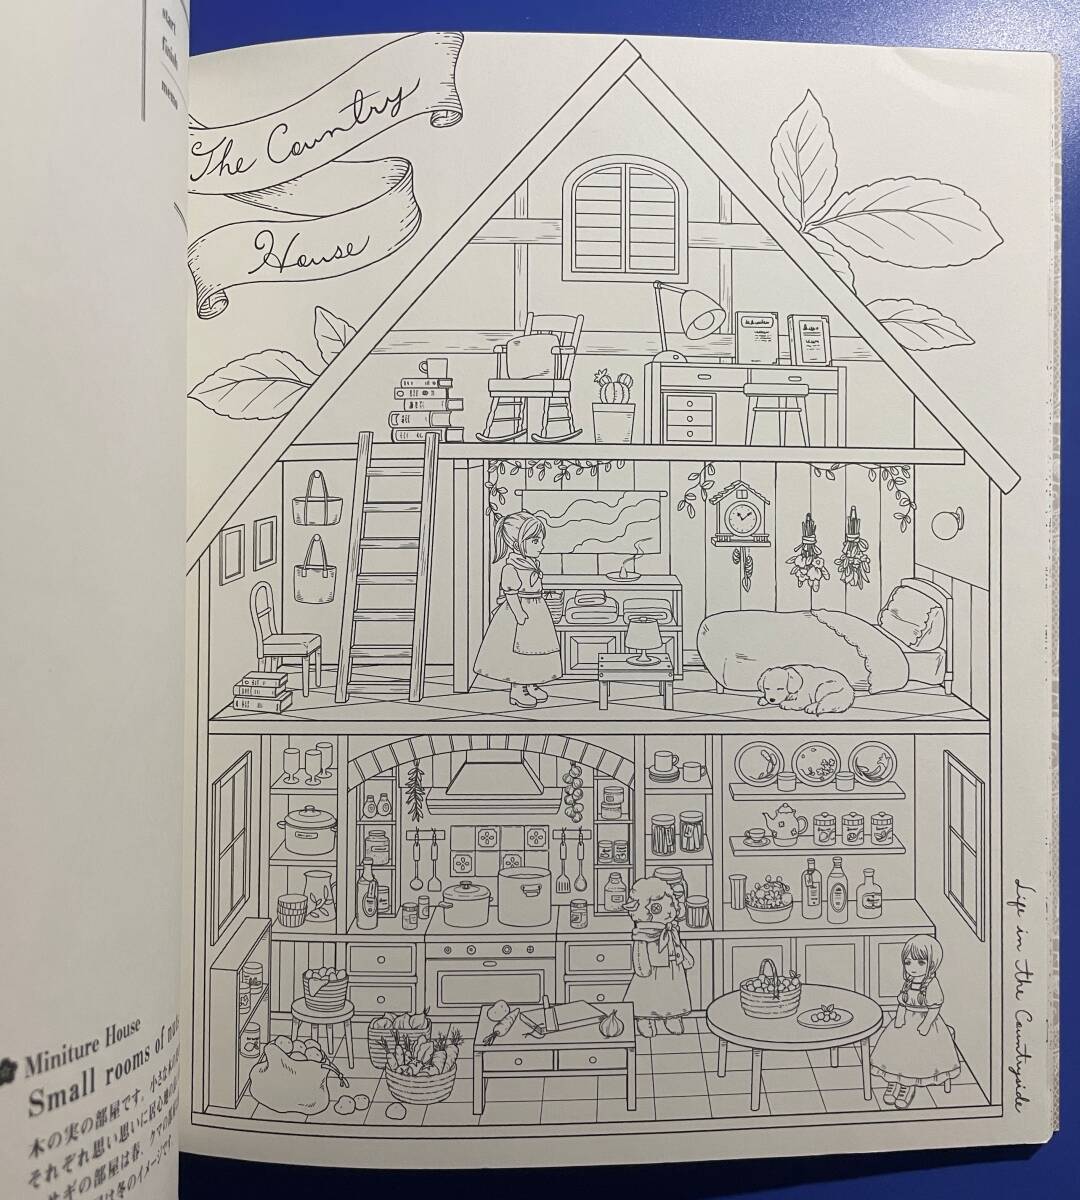 start
finish
memo
The Country
House
Life in the Countryside
Miniture House
Small rooms of
木の実の部屋です。小さな
それぞれ思い思いに居心地の
サギの部屋は春、クマの
は冬のイメージです。